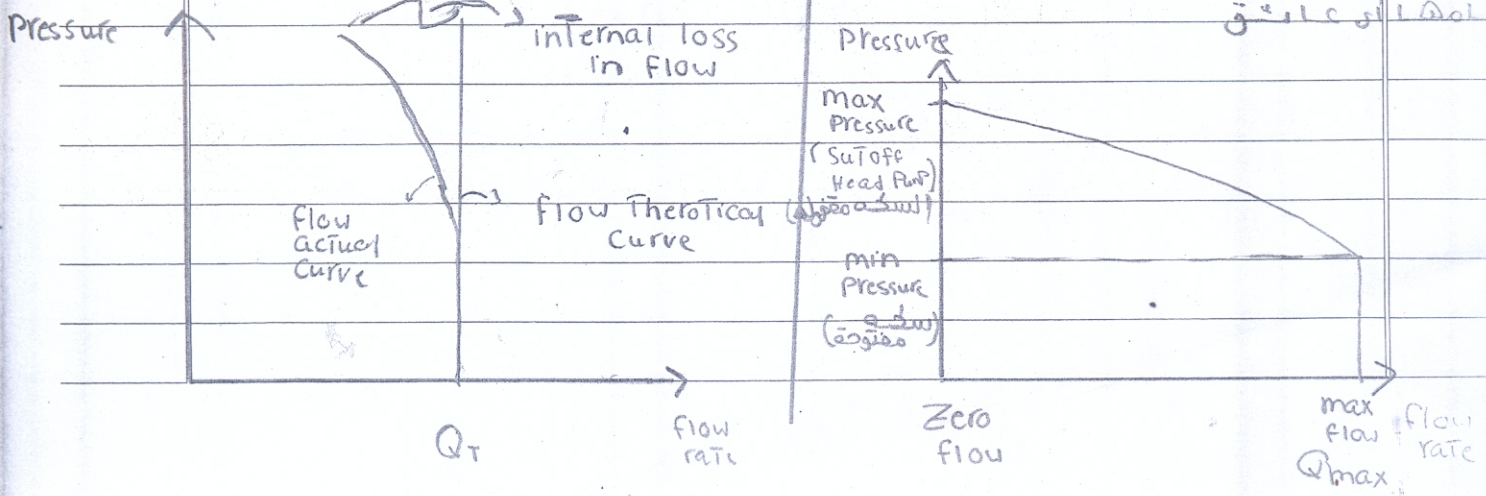 Pressure
internal loss
in flow
flow
actual
curve
flow Theroticay
Curve
QT
flow
rate
Pressure
max
Pressure
(SuToff
Head Pump)
min
Pressure
(سكه
مفتوحة)
Zero
flow
max
flow
Qmax
flow
rate